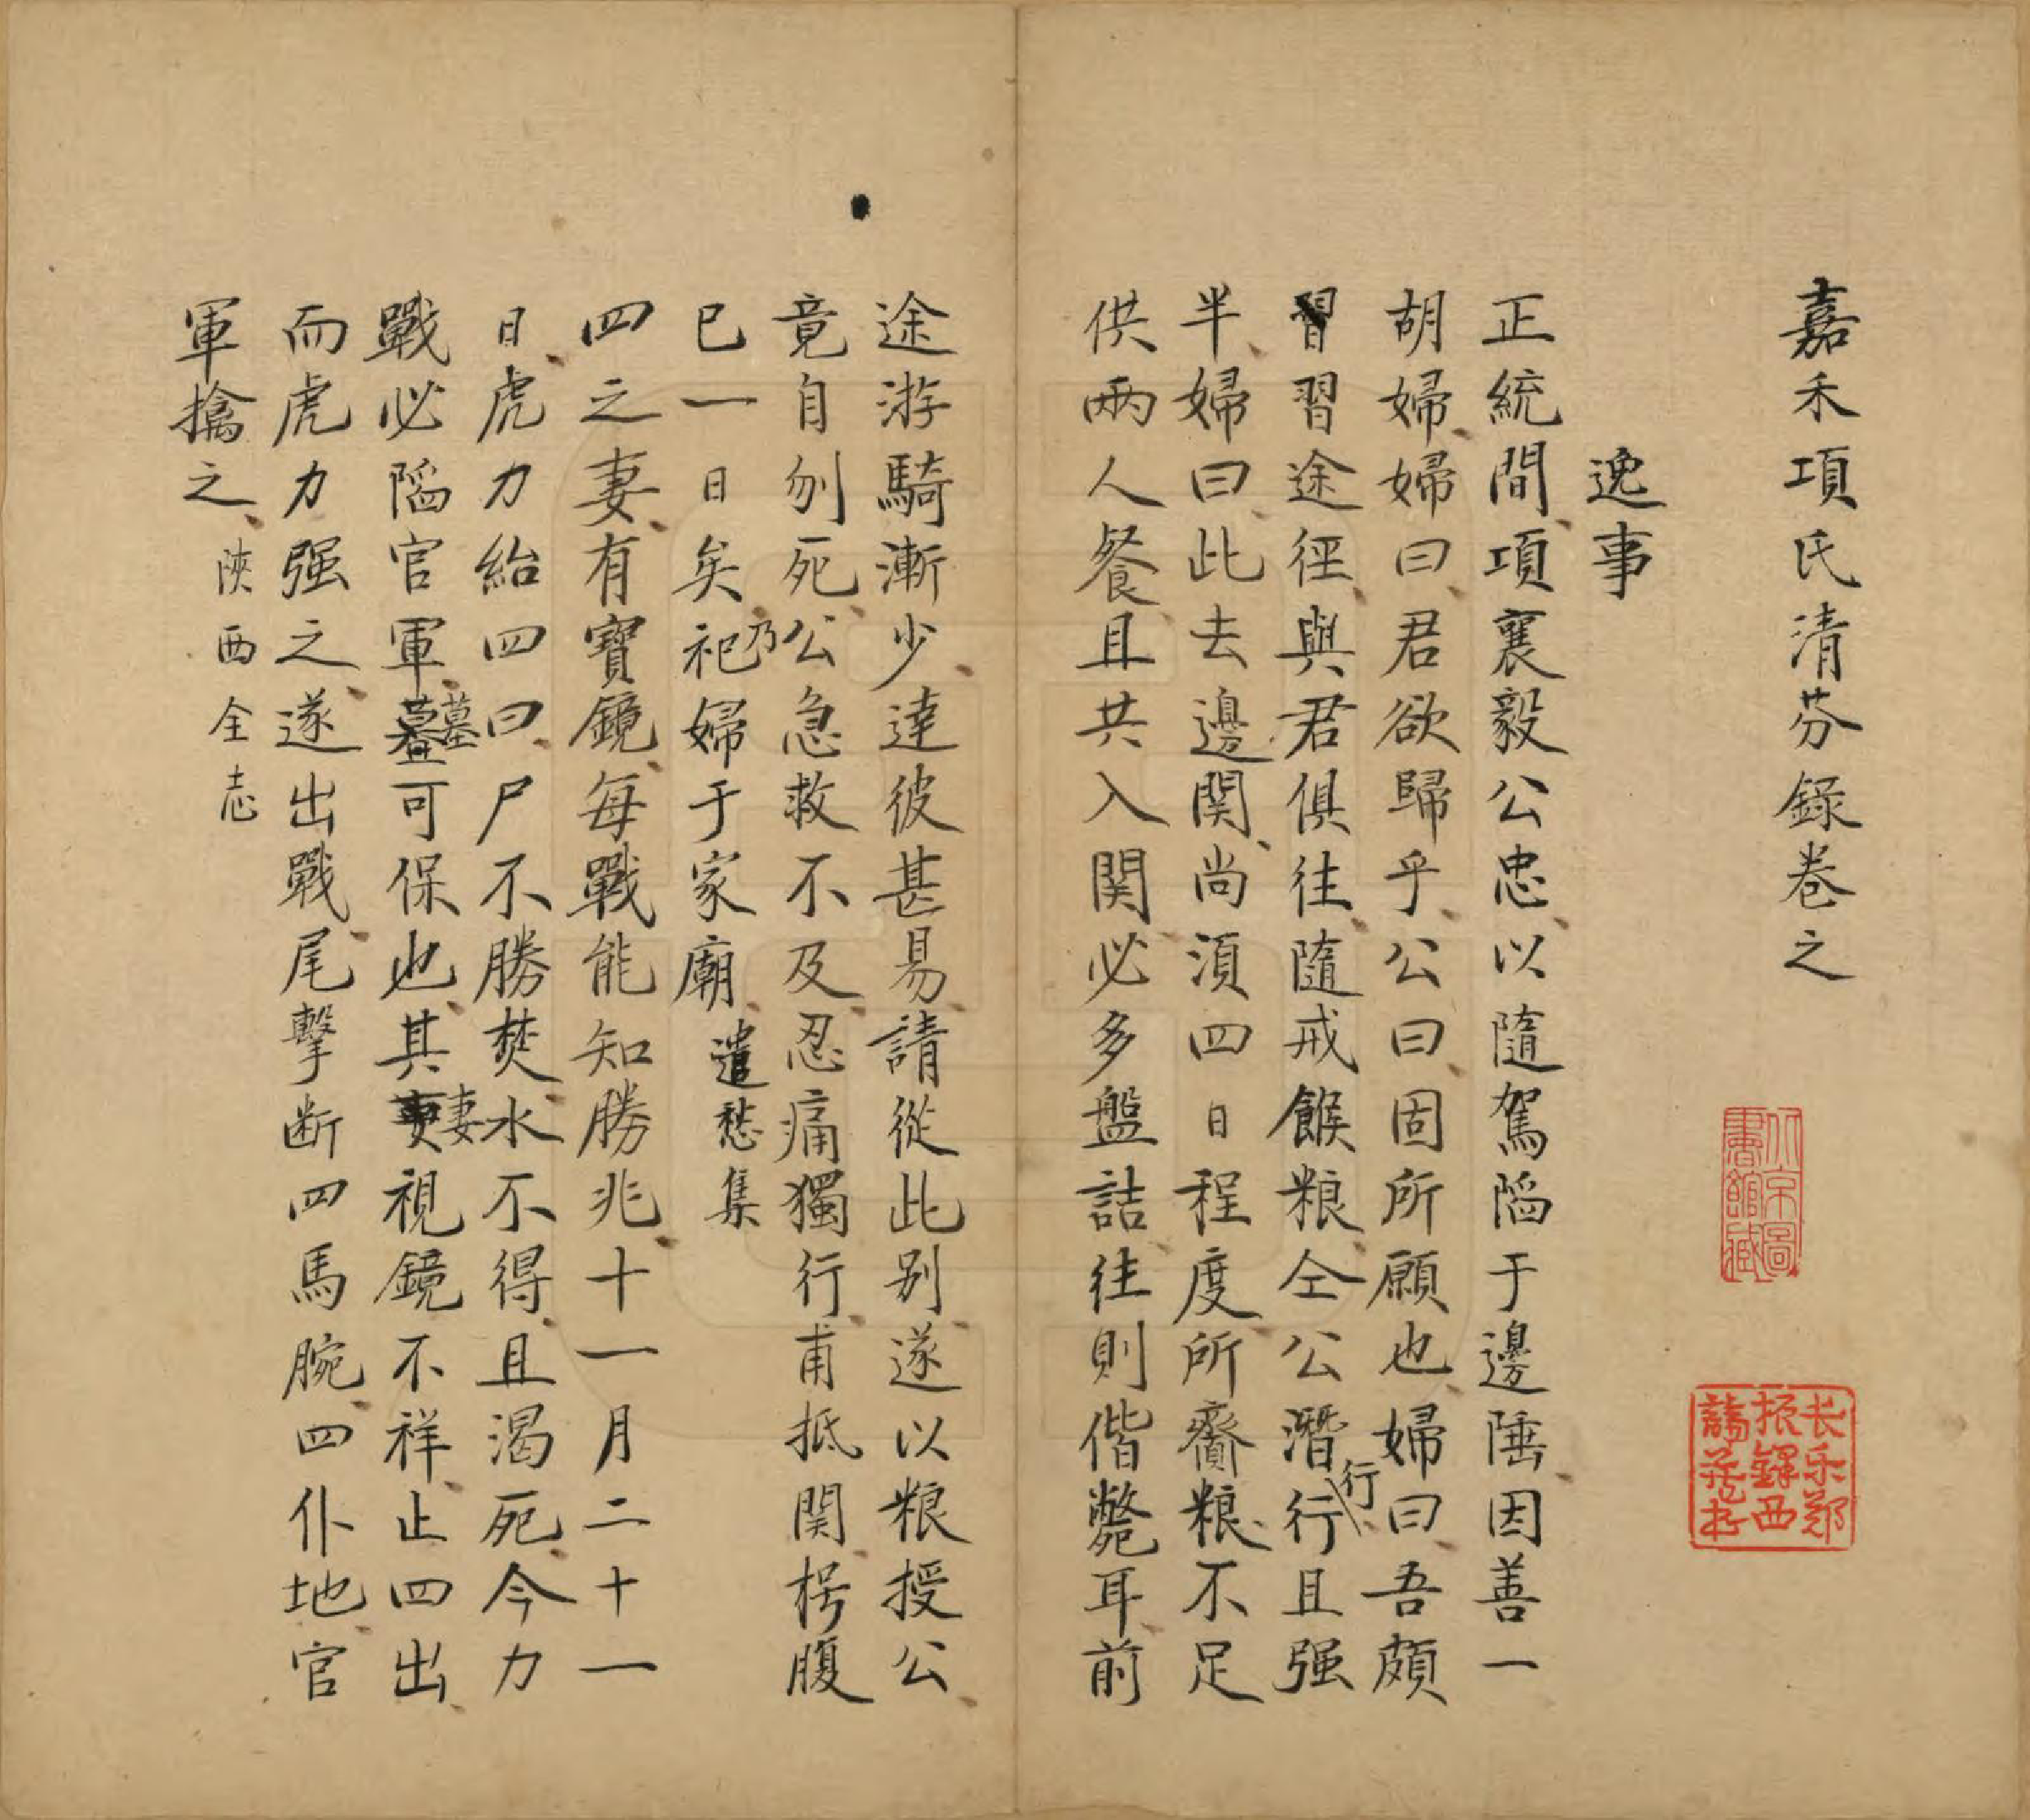 嘉禾項氏清芬錄卷之
逸事
正統間項襄毅公忠以隨駕陷于邊陲因善一
胡婦婦曰君欲歸乎公曰固所願也婦曰吾頗
習習途徑與君俱往隨戒餱粮仝公潛行行且强
半婦曰此去邊関尚湏四日程度所齎粮不足
供兩人餐且共入関必多盤詰徃則偕斃耳前
途游騎漸少達彼甚易請從此別遂以粮授公
竟自刎死公急救不及忍痛獨行甫抵関枵腹
已一日矣乃祀婦于家廟 遣愁集
四之妻有寶鏡每戰能知勝兆十一月二十一
日虎力紿四曰尸不勝焚水不得且渴死今力
戰必陷官軍墓可保也其妻視鏡不祥止四出
而虎力强之遂出戰尾擊断四馬腕四仆地官
軍擒之 陝西全志
北京圖
書館藏
长乐郑
振铎西
諦藏书